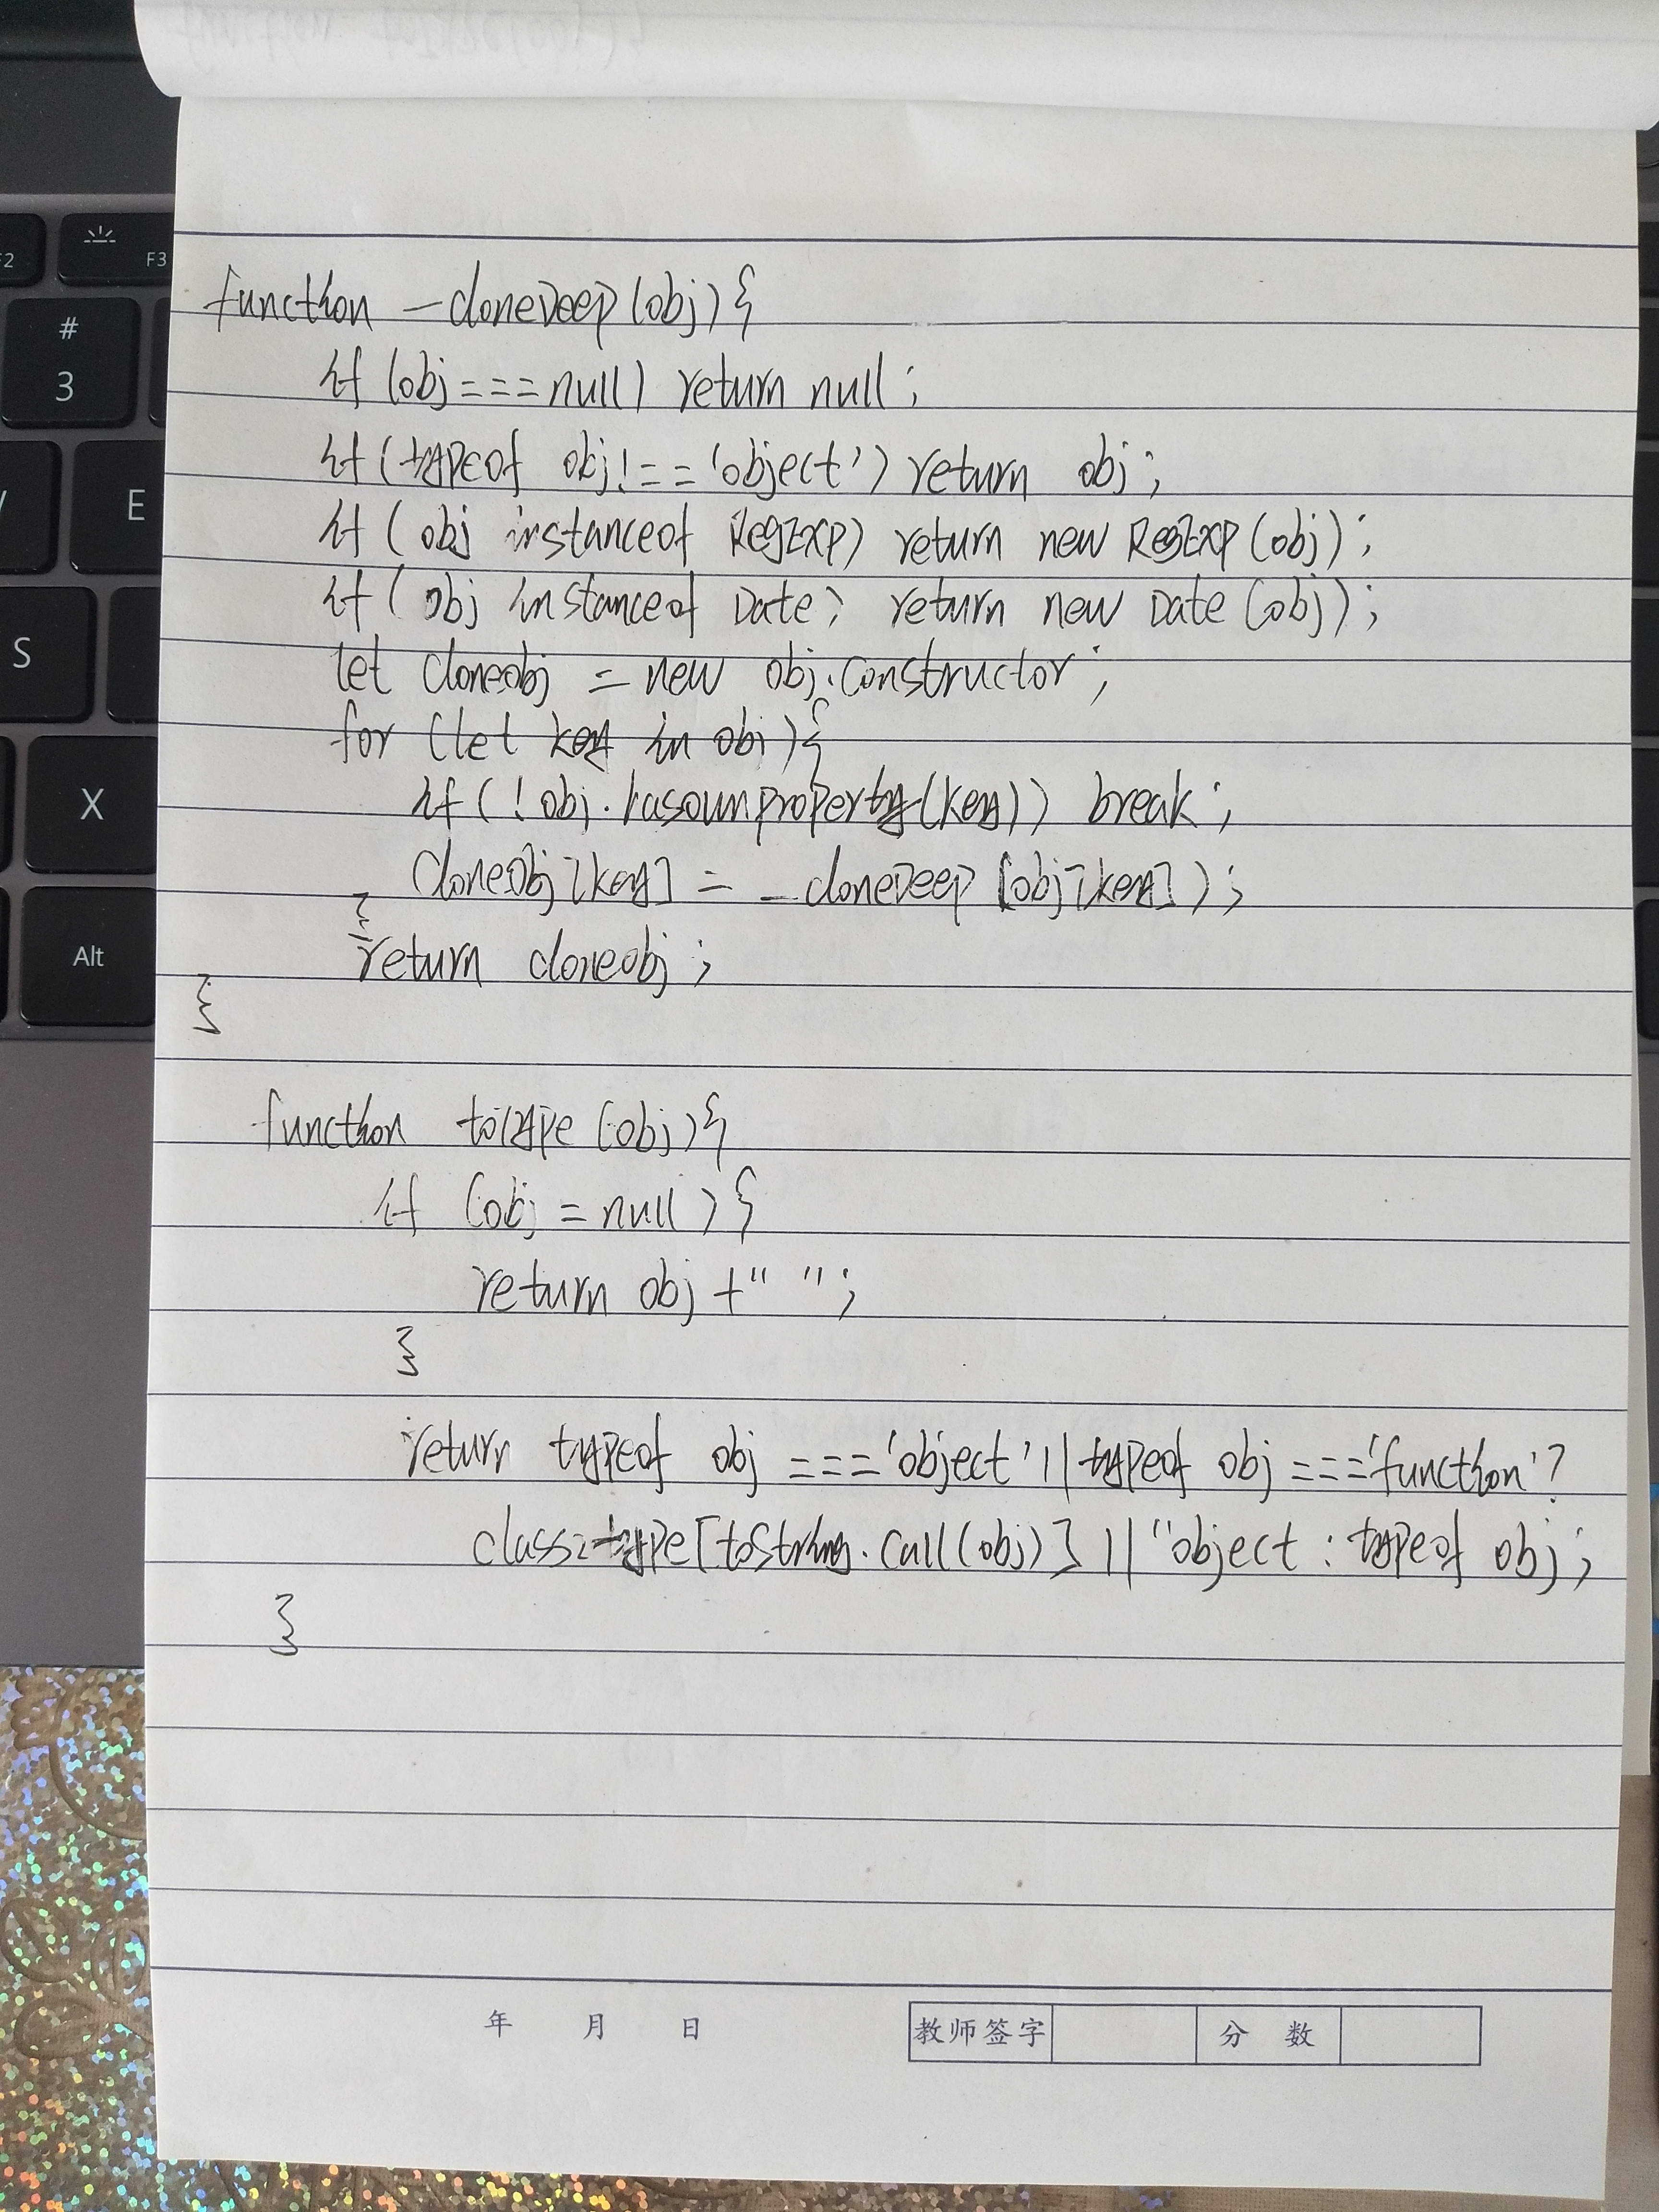 function _cloneDeep(obj){
if (obj===null) return null;
if (typeof obj!=='object') return obj;
if ( obj instanceof RegExp) return new RegExp(obj);
if ( obj instanceof Date) return new Date(obj);
let cloneobj = new obj.constructor;
for (let key in obj){
if(!obj.hasownproperty(key)) break;
cloneobj[key] = _cloneDeep[obj[key]);
}
return cloneobj;
}
function toType(obj){
if (obj = null){
return obj +" ";
}
return typeof obj ==='object'||typeof obj==='function'?
class2type[toString.call(obj)] ||"object : typeof obj;
}
年 月 日 教师签字 分 数
F2
F3
#
3
E
S
X
Alt